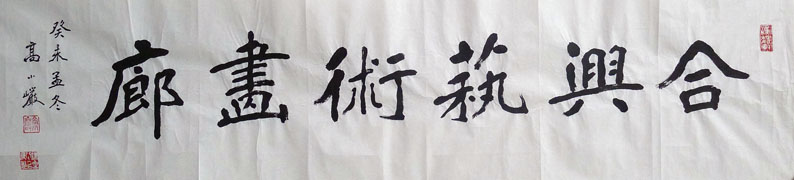 合興藝術畫廊
癸未孟冬
高小巖